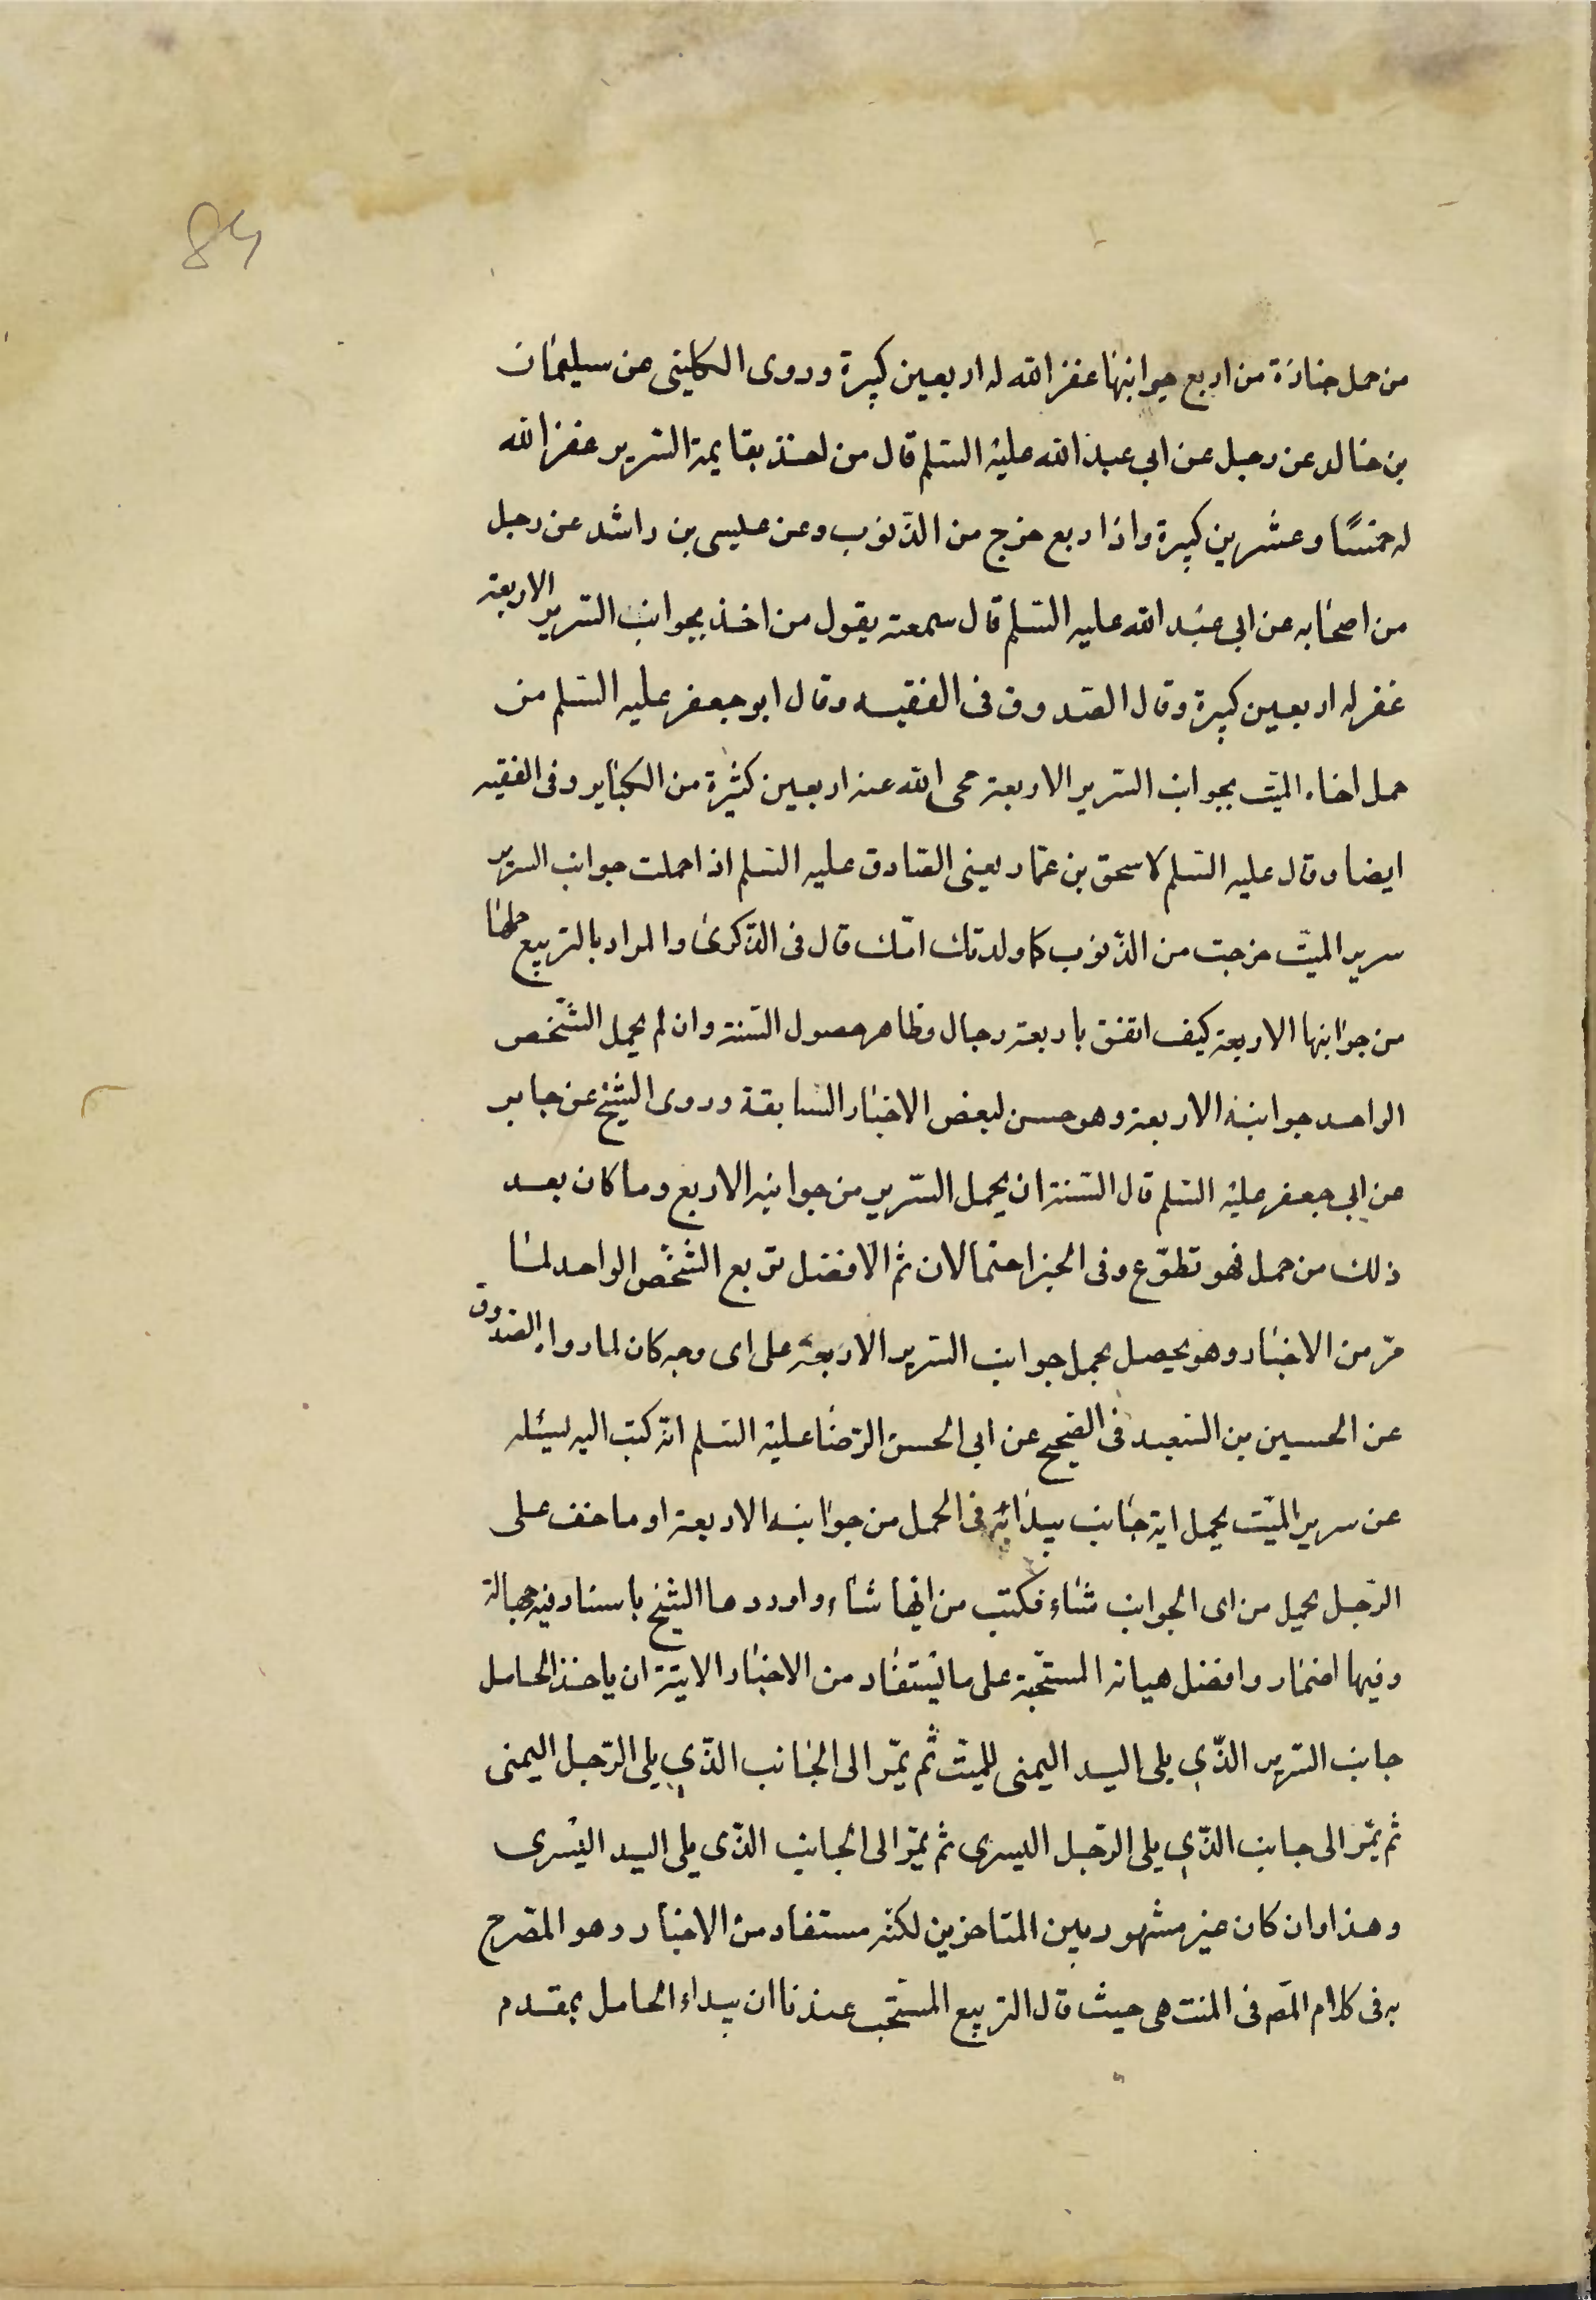 84
من حمل جنازة من اربع جوانبها غفر الله له اربعين كبيرة وروى الكليني عن سليمان
بن خالد عن رجل عن ابي عبد الله عليه السلم قال من اخذ بقايمة السرير غفر الله
له خمسًا وعشرين كبيرة واذا ربع خرج من الذنوب وعن عليسى بن راشد عن رجل
من اصحابه عن ابي عبد الله عليه السّلم قال سمعته يقول من اخذ بجوانب السّرير الاربعة
غفر له اربعين كبيرة وقال الصّدوق فى الفقيه وقال ابو جعفر عليه السّلم من
حمل اخاه الميّت بجوانب السّرير الاربعة محى الله عنه اربعين كثيرة من الكبٰاير وفى الفقيه
ايضا وقال عليه السّلم لاسحق بن عمّار يعنى الصّادق عليه السّلم اذا حملت جوانب السرير
سرير الميّت خرجت من الذّنوب كما ولدتك امّك قال فى الذّكرىٰ والمراد بالتربيع حملها
من جوانبها الاربعة كيف اتفق باربعة رجال وظاهر حصول السّنة وان لم يحمل الشّخص
الواحد جوانبه الاربعة وهو حسن لبعض الاخبٰار السّابقة وروى الشّيخ عن جابر
عن ابي جعفر عليه السّلم قال السّنة ان يحمل السّرير من جوانبه الاربع وما كان بعد
ذلك من حمل فهو تطوّع وفى الخبر احتمالان ثم الافضل تربع الشّخص الواحد لمٰا
مرّ من الاخبٰار وهو يحصل بحمل جوانب السّرير الاربعة على اى وجه كان لما رواه الصّدوق
عن الحسين بن السّعيد فى الصّحيح عن ابي الحسن الرّضا عليه السّلم انّه كتب اليه يسئله
عن سرير الميّت يحمل اية جٰانب يبدٰا به فى الحمل من جوٰانبه الاربعة او ما خف على
الرّجل يحمل من اى الجوانب شٰاء فكتب من ايّها شٰاء واوردها الشّيخ باسناد فيه جهالة
وفيها اضمٰار وافضل هياته المستحبّة على ما يستفٰاد من الاخبٰار الاتية ان ياخذ الحامل
جانب السّرير الذّي يلى اليد اليمنى للميّت ثم يمّر الى الجٰانب الذّي يلى الرّجل اليمنى
ثم يمّر الى جانب الذّي يلى الرّجل اليسرى ثم يمّر الى الجانب الذّى يلى اليد اليسرى
وهذا وان كان غير مشهور بين المتاخرين لكنّه مستفاد من الاخبٰار وهو المصّرح
به فى كلام المصّ فى المنتهى حيث قال التربيع المستحّب عندنا ان يبداء الحامل بمقدم